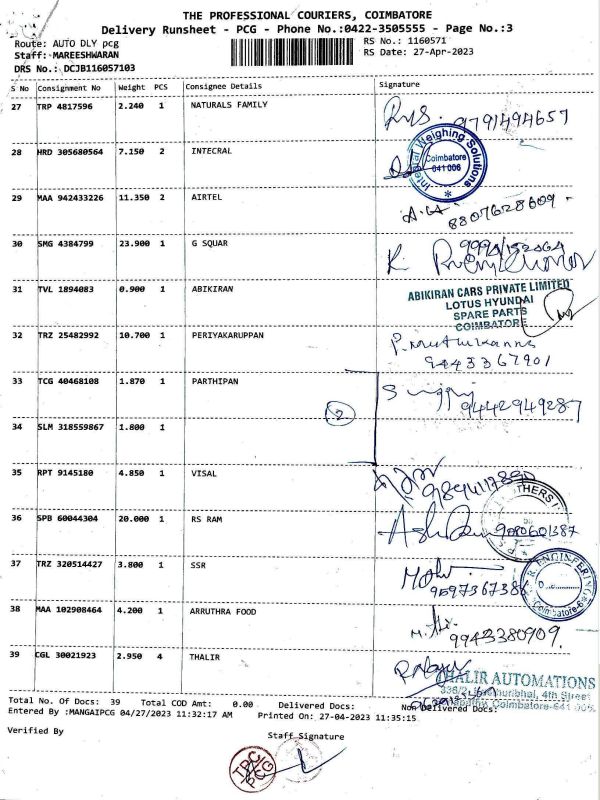 THE PROFESSIONAL COURIERS, COIMBATORE
Delivery Runsheet - PCG - Phone No.:0422-3505555 - Page No.:3
Route: AUTO DLY pcg
RS No.: 1160571
Staff: MAREESHWARAN
RS Date: 27-Apr-2023
DRS No.: DCJB116057103
S No Consignment No Weight PCS Consignee Details Signature
27 TRP 4817596 2.240 1 NATURALS FAMILY 9791494657
28 HRD 305680564 7.150 2 INTECRAL
Integral Weighing Solutions
Coimbatore
641 006
29 MAA 942433226 11.350 2 AIRTEL
8807628609
30 SMG 4384799 23.900 1 G SQUAR
K
31 TVL 1894083 0.900 1 ABIKIRAN
ABIKIRAN CARS PRIVATE LIMITED
LOTUS HYUNDAI
SPARE PARTS
COIMBATORE
32 TRZ 25482992 10.700 1 PERIYAKARUPPAN
P. Muthukannu
9443367901
33 TCG 40468108 1.870 1 PARTHIPAN
9442949287
2
34 SLM 318559867 1.800 1
35 RPT 9145180 4.850 1 VISAL
36 SPB 60044304 20.000 1 RS RAM
37 TRZ 320514427 3.800 1 SSR
ENGINEERING
Coimbatore-6
38 MAA 102908464 4.200 1 ARRUTHRA FOOD
9942380909.
39 CGL 30021923 2.950 4 THALIR
THALIR AUTOMATIONS
4th Street
Coimbatore-641 006
Total No. Of Docs: 39 Total COD Amt: 0.00 Delivered Docs: Non Delivered Docs:
Entered By :MANGAIPCG 04/27/2023 11:32:17 AM Printed On: 27-04-2023 11:35:15
Verified By
Staff Signature
TPC
PCG